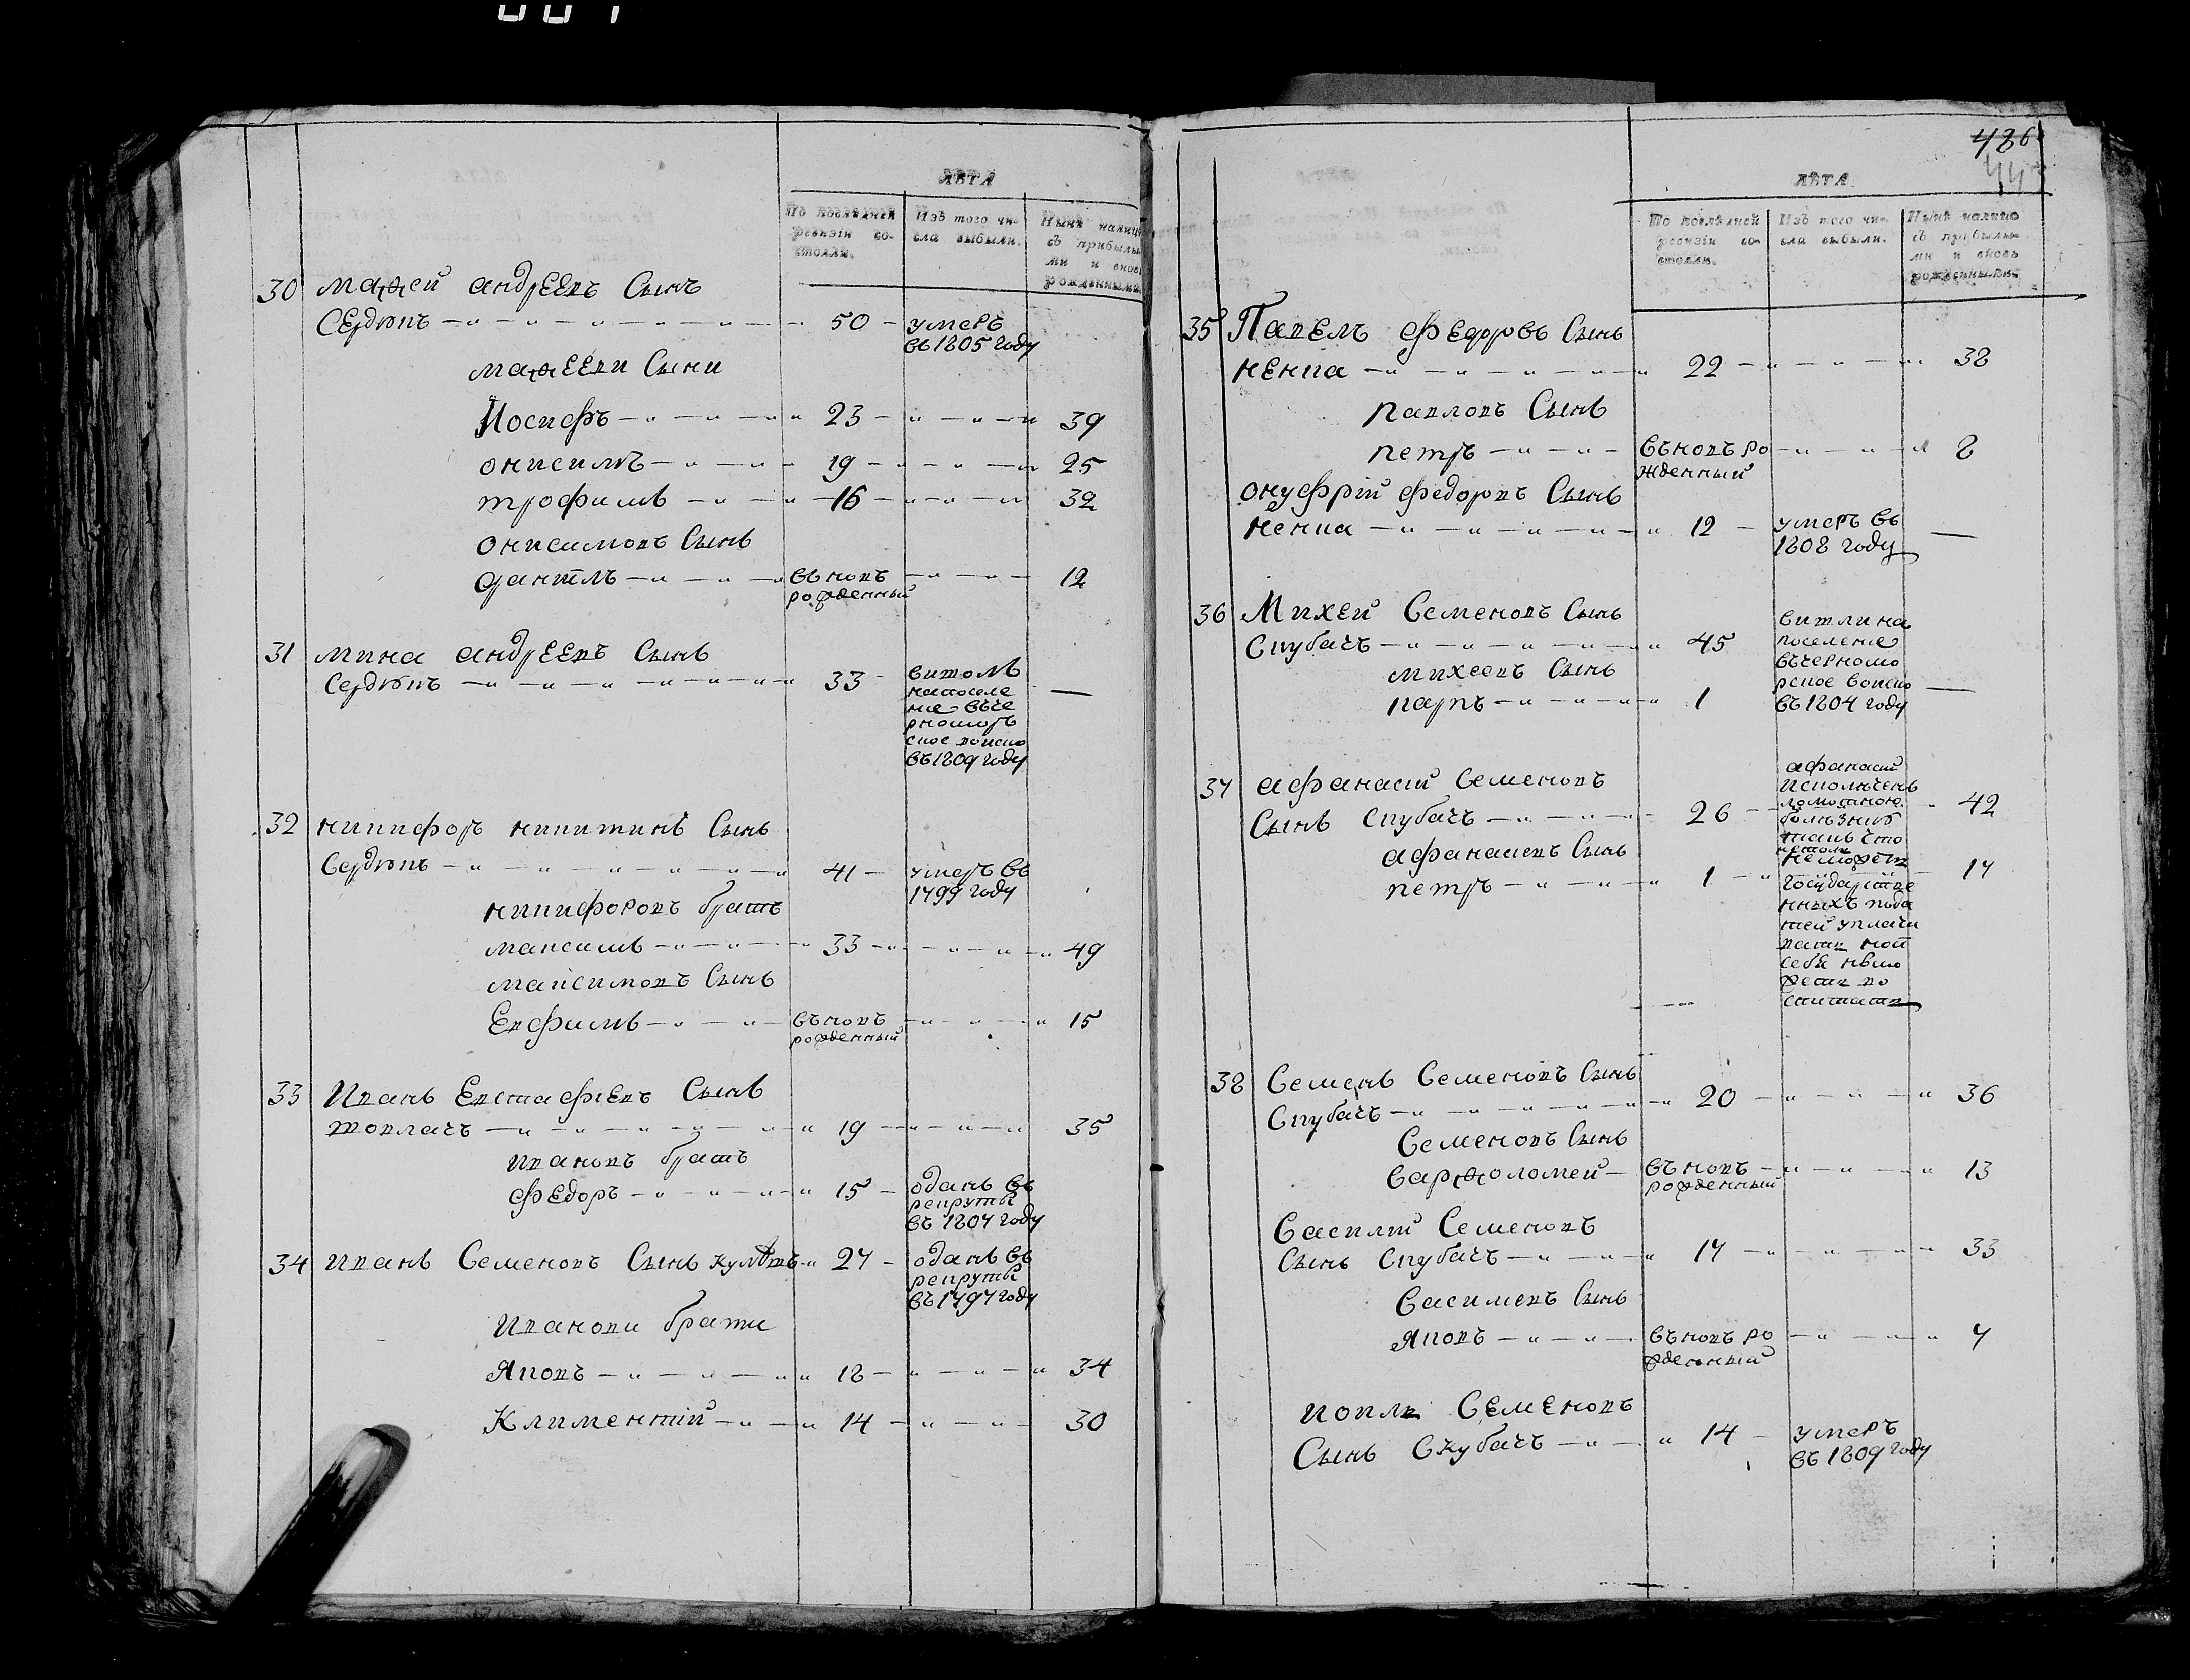 ЛѢТА
По послѣдней ревизіи состояли.
Изъ того числа выбыли.
Нынѣ налицо съ прибылыми и вновь рожденными.
30 Маѳей андреевъ Сынъ
Сердюкъ 50 умеръ
въ 1805 году
маѳееви Сыни
Иосифъ 23 39
онисимъ 19 25
трофимъ 16 32
онисимовъ Сынъ
данилъ въновь 12
рожденный
31 мина андреевъ Сынъ
Сердюкъ 33 вишолъ
напоселе
ние въче
рноморъ
ское войско
въ 1809 году
32 никифоръ никитинъ Сынъ
Сердюкъ 41 умеръ въ
1799 году
никифоровъ братъ
максимъ 33 49
максимовъ Сынъ
Евфимъ въновь 15
рожденный
33 Иванъ Евстафиевъ Сынъ
товкачъ 19 35
ивановъ братъ
федоръ 15 оданъ въ
рекруты
въ 1807 году
34 иванъ Семеновъ Сынъ 27 оданъ въ
рекруты
въ 1797 году
Иванови брати
Яковъ 18 34
Климентий 14 30
486
ЛѢТА
По послѣдней ревизіи состояли.
Изъ того числа выбыли.
Нынѣ налицо съ прибылыми и вновь рожденными
35 Павелъ федоровъ Сынъ
кекиа 22 38
павловъ Сынъ
петръ въновь ро 8
жденный
онуфрій федоровъ Сынъ
12 умеръ въ
1808 году
36 Михей Семеновъ Сынъ
Скубачъ 45
михеевъ Сынъ
карпъ 1
вишли на
поселение
въчерномо
рское войско
въ 1804 году
37 афанасий Семеновъ
Сынъ Скубачъ 26 42
афанасиевъ Сынъ
петръ 1 17
афанасий
болѣзнию
такъ что
неможетъ
государстве
нныхъ пода
тей уплачи
вать
38 Семенъ Семеновъ Сынъ
Скубачъ 20 36
Семеновъ Сынъ
Варѳоломей въновь 13
рожденный
Василий Семеновъ
Сынъ Скубачъ 17 33
Василиевъ Сынъ
Яковъ въновь ро 7
жденный
Семеновъ
Сынъ Скубачъ 14 умеръ
въ 1809 году